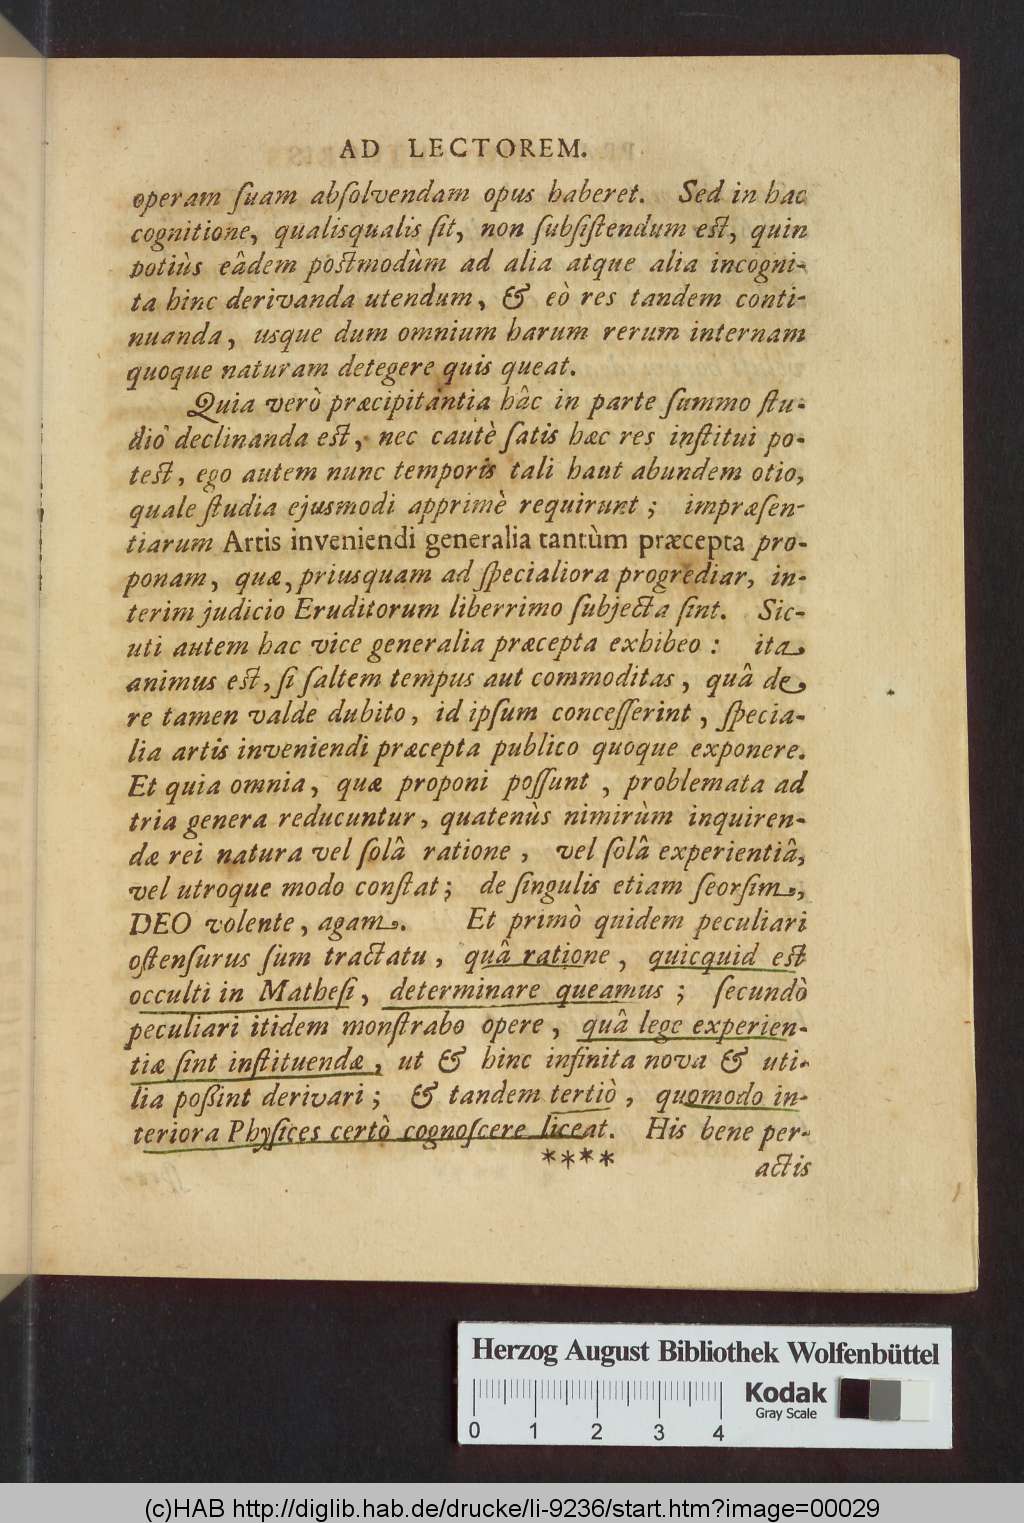 AD LECTOREM.
operam ſuam abſolvendam opus haberet. Sed in hac
cognitione, qualisqualis ſit, non ſubſiſtendum eſt, quin
potiùs eâdem poſtmodùm ad alia atque alia incogni-
ta hinc derivanda utendum, & eò res tandem conti-
nuanda, usque dum omnium harum rerum internam
quoque naturam detegere quis queat.
Quia verò præcipitantia hâc in parte ſummo ſtu-
diò declinanda eſt, nec cautè ſatis hæc res inſtitui po-
teſt, ego autem nunc temporis tali haut abundem otio,
quale ſtudia ejusmodi apprimè requirunt; impræſen-
tiarum Artis inveniendi generalia tantùm præcepta pro-
ponam, quæ, priusquam ad ſpecialiora progrediar, in-
terim judicio Eruditorum liberrimo ſubjecta ſint. Sic-
uti autem hac vice generalia præcepta exhibeo: ita
animus eſt, ſi ſaltem tempus aut commoditas, quâ de
re tamen valde dubito, id ipſum conceſſerint, ſpecia-
lia artis inveniendi præcepta publico quoque exponere.
Et quia omnia, quæ proponi poſſunt, problemata ad
tria genera reducuntur, quatenùs nimirùm inquiren-
dæ rei natura vel ſolâ ratione, vel ſolâ experientiâ,
vel utroque modo conſtat; de ſingulis etiam ſeorſim,
DEO volente, agam. Et primò quidem peculiari
oſtenſurus ſum tractatu, quâ ratione, quicquid eſt
occulti in Matheſi, determinare queamus; ſecundò
peculiari itidem monſtrabo opere, quâ lege experien-
tiæ ſint inſtituendæ, ut & hinc infinita nova & uti-
lia poßint derivari; & tandem tertiò, quomodo in-
teriora Phyſices certò cognoſcere liceat. His bene per-
**** actis
Herzog August Bibliothek Wolfenbüttel
Kodak
Gray Scale
0 1 2 3 4
(c)HAB http://diglib.hab.de/drucke/li-9236/start.htm?image=00029